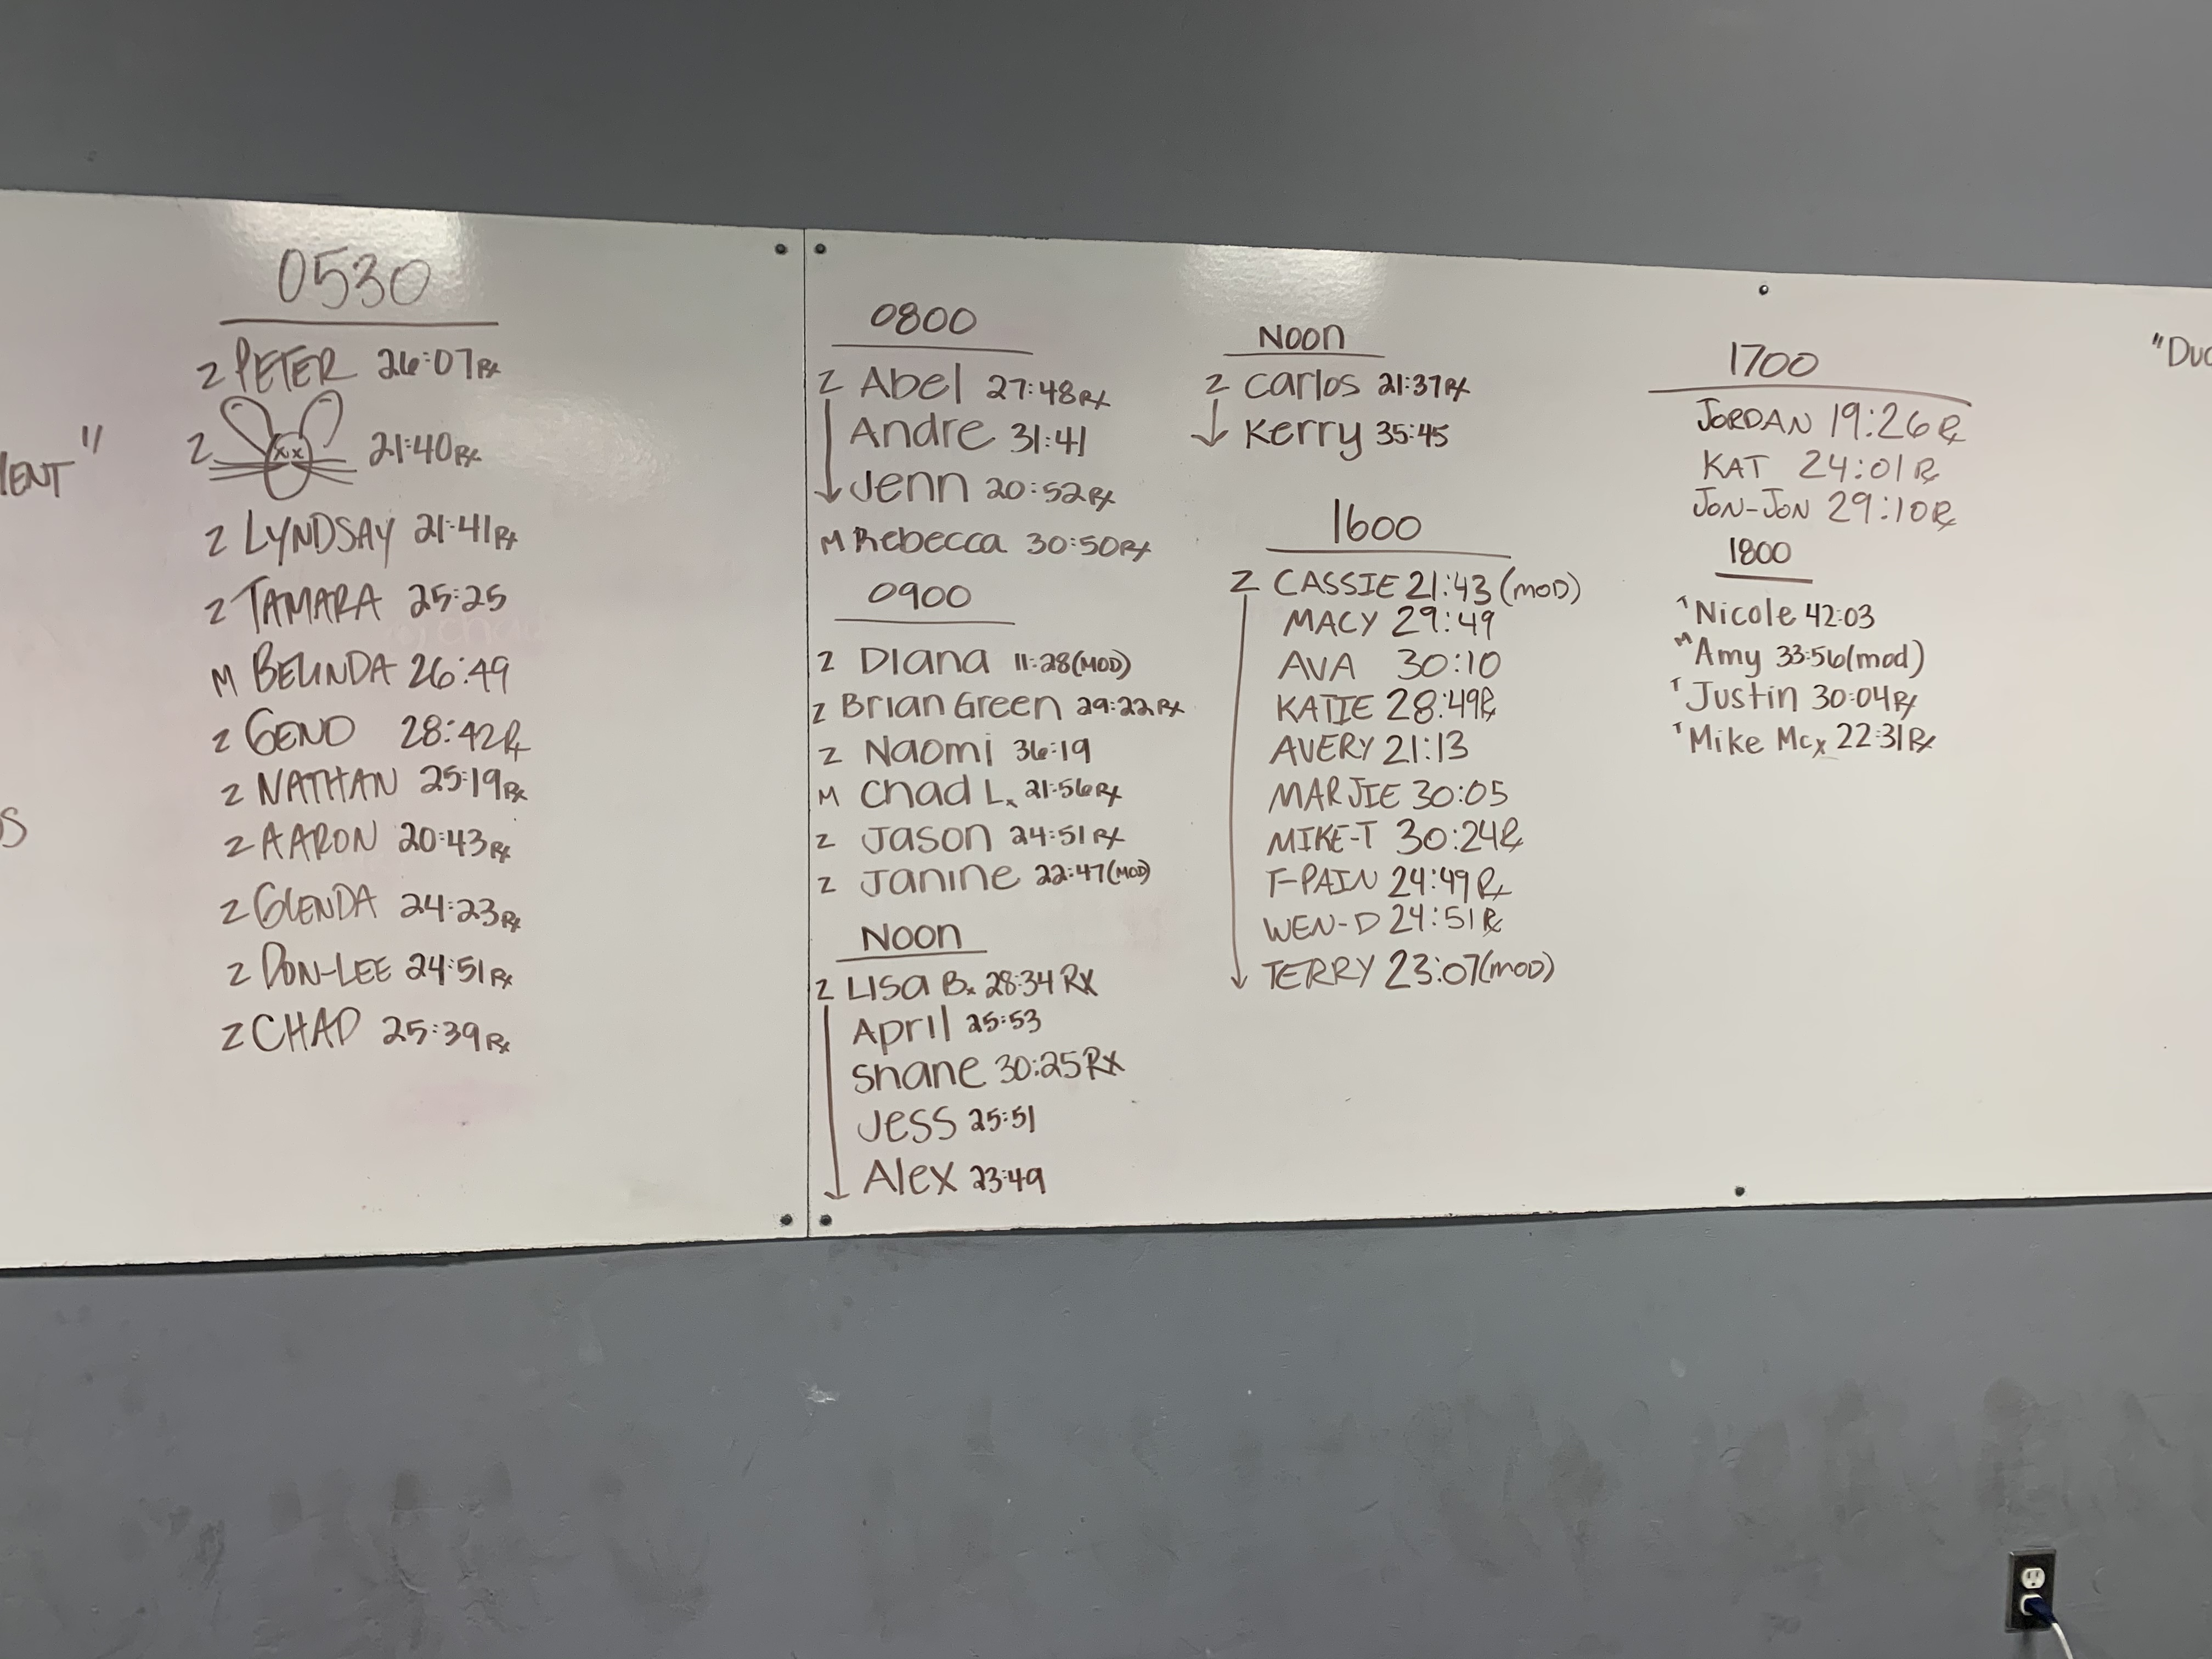 MENT"
S
0530
Z PETER 26:07 Rx
Z 21:40 Rx
Z LYNDSAY 21:41 Rx
Z TAMARA 25:25
M BELINDA 26:49
Z GENO 28:42 Rx
Z NATHAN 25:19 Rx
Z AARON 20:43 Rx
Z GLENDA 24:23 Rx
Z DON-LEE 24:51 Rx
Z CHAD 25:39 Rx
0800
Z Abel 27:48 Rx
Andre 31:41
Jenn 20:52 Rx
M Rebecca 30:50 Rx
0900
Z Diana 11:28 (MOD)
Z Brian Green 29:22 Rx
Z Naomi 36:19
M Chad L. 21:56 Rx
Z Jason 24:51 Rx
Z Janine 22:47 (MOD)
Noon
Z Lisa B. 28:34 Rx
April 25:53
Shane 30:25 Rx
Jess 25:51
Alex 23:49
Noon
Z Carlos 21:37 Rx
Kerry 35:45
1600
Z CASSIE 21:43 (MOD)
MACY 29:49
AVA 30:10
KATIE 28:49 Rx
AVERY 21:13
MARJIE 30:05
MIKE-T 30:24 Rx
T-PAIN 24:49 Rx
WEN-D 24:51 Rx
TERRY 23:07 (MOD)
1700
JORDAN 19:26 Rx
KAT 24:01 Rx
JON-JON 29:10 Rx
1800
T Nicole 42:03
M Amy 33:56 (mod)
T Justin 30:04 Rx
T Mike Mcx 22:31 Rx
"Duc